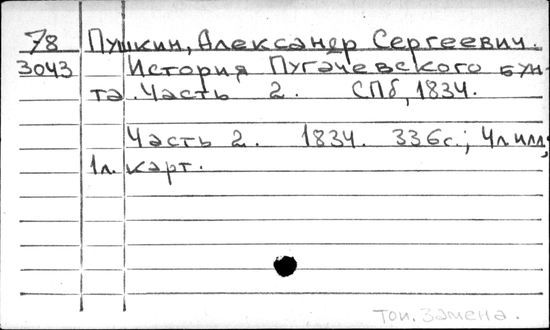 78 Пушкин, Александр Сергеевич.
3043 История Пугачевского бун-
та. Часть 2. СПб, 1834.
Часть 2. 1834. 336с.; 4л.илл;
1л. карт.
Топ. Замена.